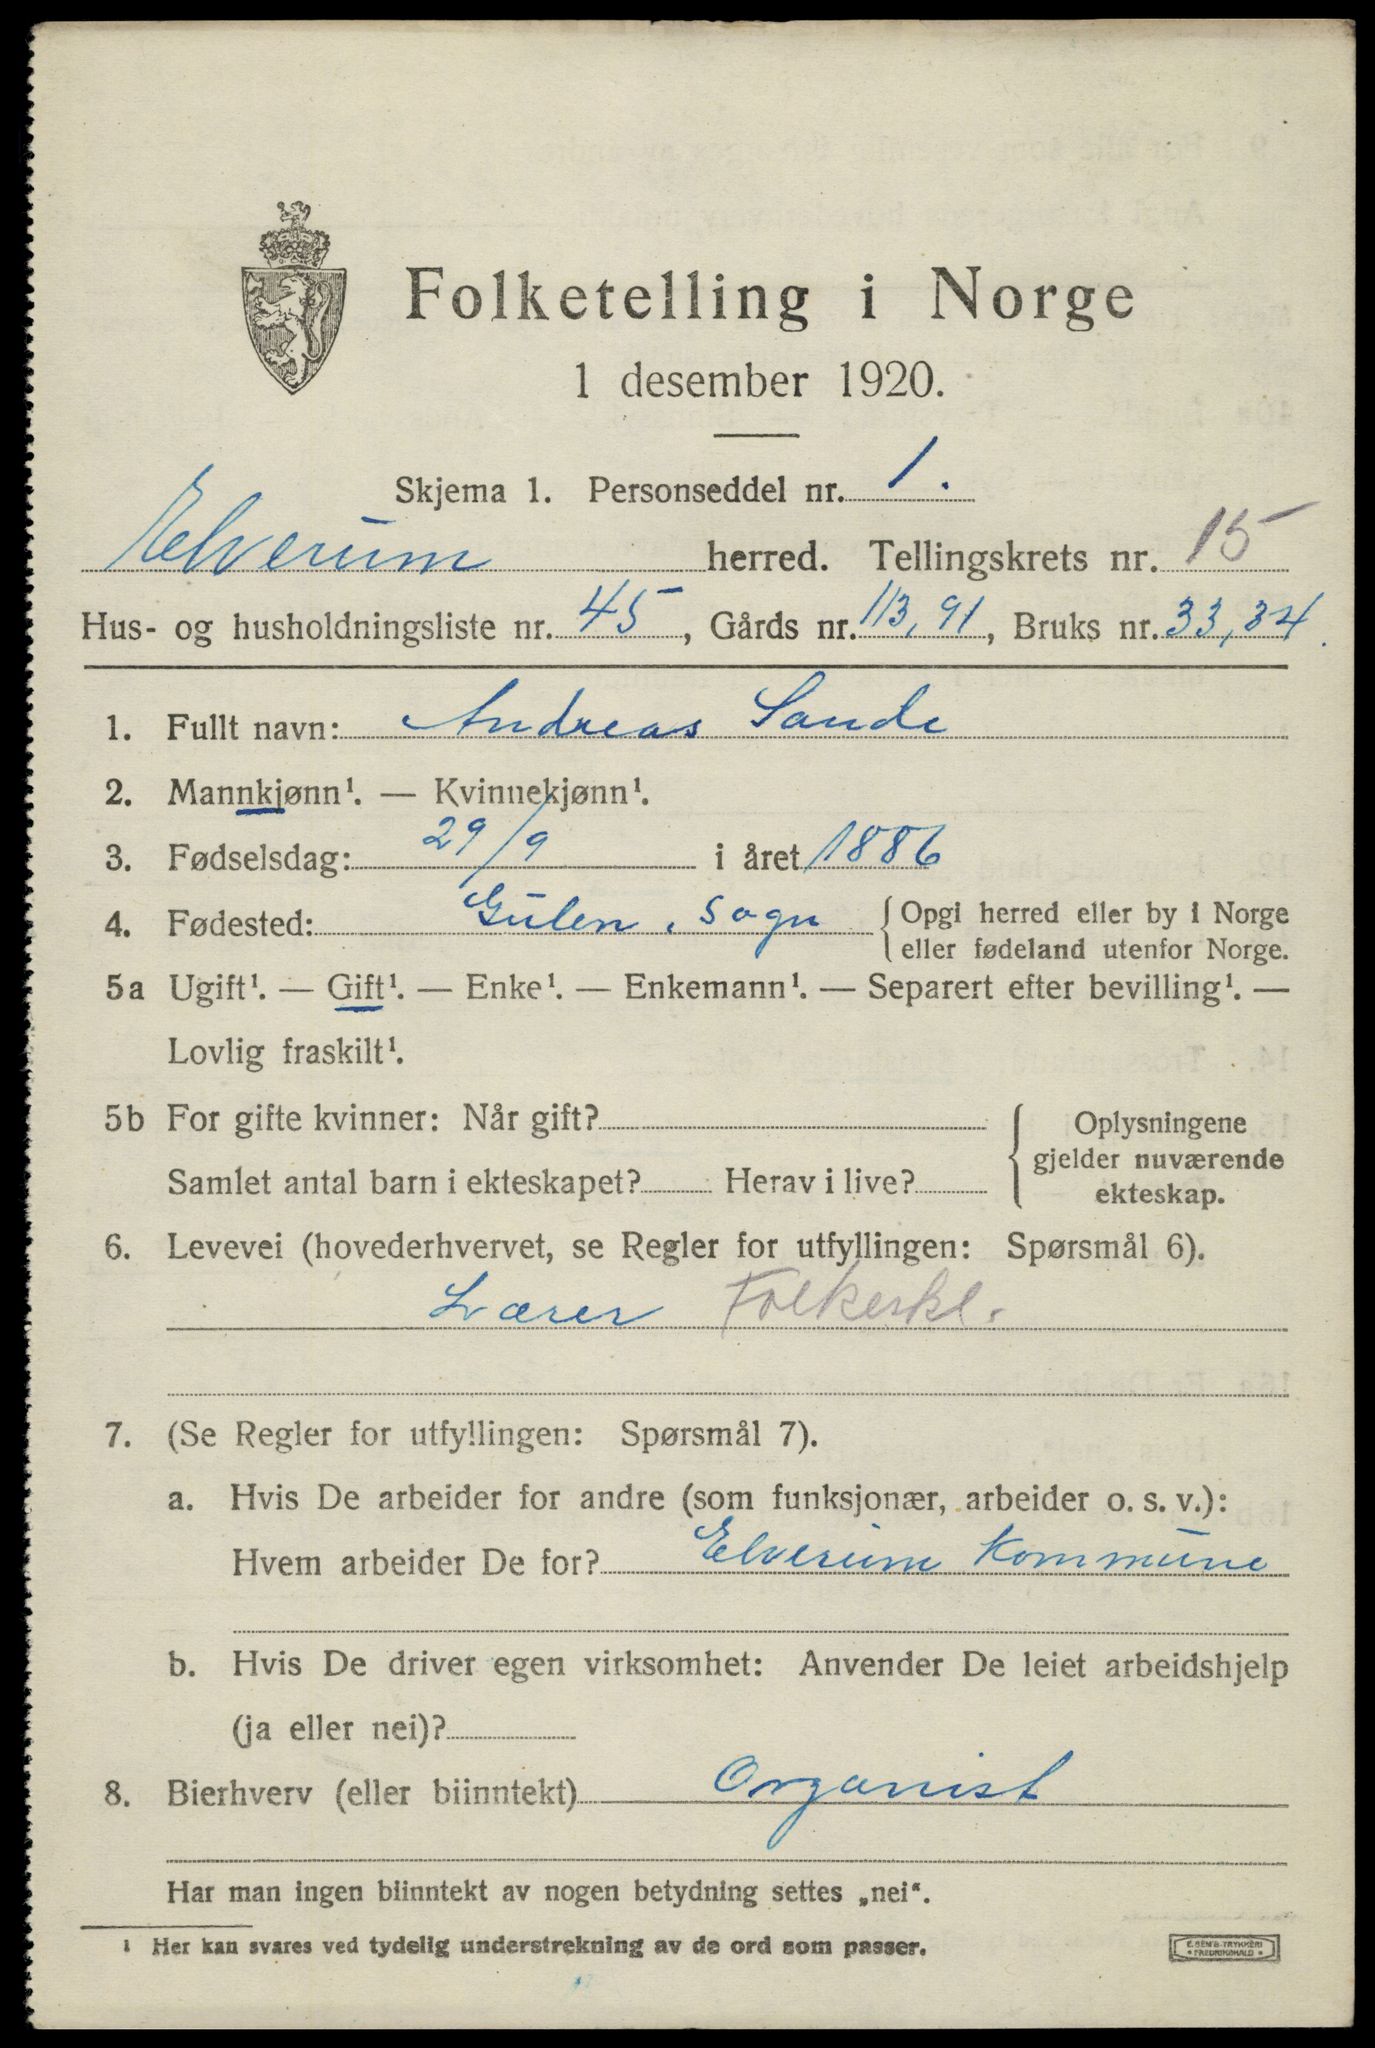 Folketelling i Norge
1 desember 1920.
Skjema 1. Personseddel nr. 1.
Elverum herred. Tellingskrets nr. 15
Hus- og husholdningsliste nr. 45, Gårds nr. 113, 91, Bruks nr. 33, 34.
1. Fullt navn: Andreas Sande
2. Mannkjønn¹. — Kvinnekjønn¹.
3. Fødselsdag: 29/9 i året 1886
4. Fødested: Gulen, Sogn { Opgi herred eller by i Norge
eller fødeland utenfor Norge.
5a Ugift¹. — Gift¹. — Enke¹. — Enkemann¹. — Separert efter bevilling¹. —
Lovlig fraskilt¹.
5b For gifte kvinner: Når gift? { Oplysningene
gjelder nuværende
Samlet antal barn i ekteskapet? Herav i live? ekteskap.
6. Levevei (hovederhvervet, se Regler for utfyllingen: Spørsmål 6).
Lærer Folkeskl.
7. (Se Regler for utfyllingen: Spørsmål 7).
a. Hvis De arbeider for andre (som funksjonær, arbeider o. s. v.):
Hvem arbeider De for? Elverum Kommune
b. Hvis De driver egen virksomhet: Anvender De leiet arbeidshjelp
(ja eller nei)?
8. Bierhverv (eller biinntekt) Organist
Har man ingen biinntekt av nogen betydning settes „nei“.
¹ Her kan svares ved tydelig understrekning av de ord som passer.